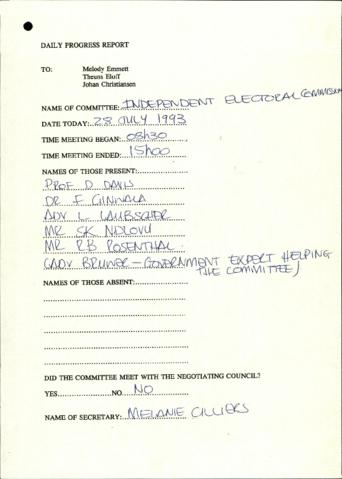 DAILY PROGRESS REPORT
TO: Melody Emmett
Theuns Eloff
Johan Christiansen
NAME OF COMMITTEE: INDEPENDENT ELECTORAL COMMISSION
DATE TODAY: 28 JULY 1993
TIME MEETING BEGAN: 08h30
TIME MEETING ENDED: 15h00
NAMES OF THOSE PRESENT:
PROF D DAVIS
DR F GINWALA
ADV L LAUBSCHER
MR SK NDLOVU
MR RB ROSENTHAL
(ADV BRUWER - GOVERNMENT EXPERT HELPING
THE COMMITTEE)
NAMES OF THOSE ABSENT:
DID THE COMMITTEE MEET WITH THE NEGOTIATING COUNCIL?
YES NO NO
NAME OF SECRETARY: MELANIE CILLIERS